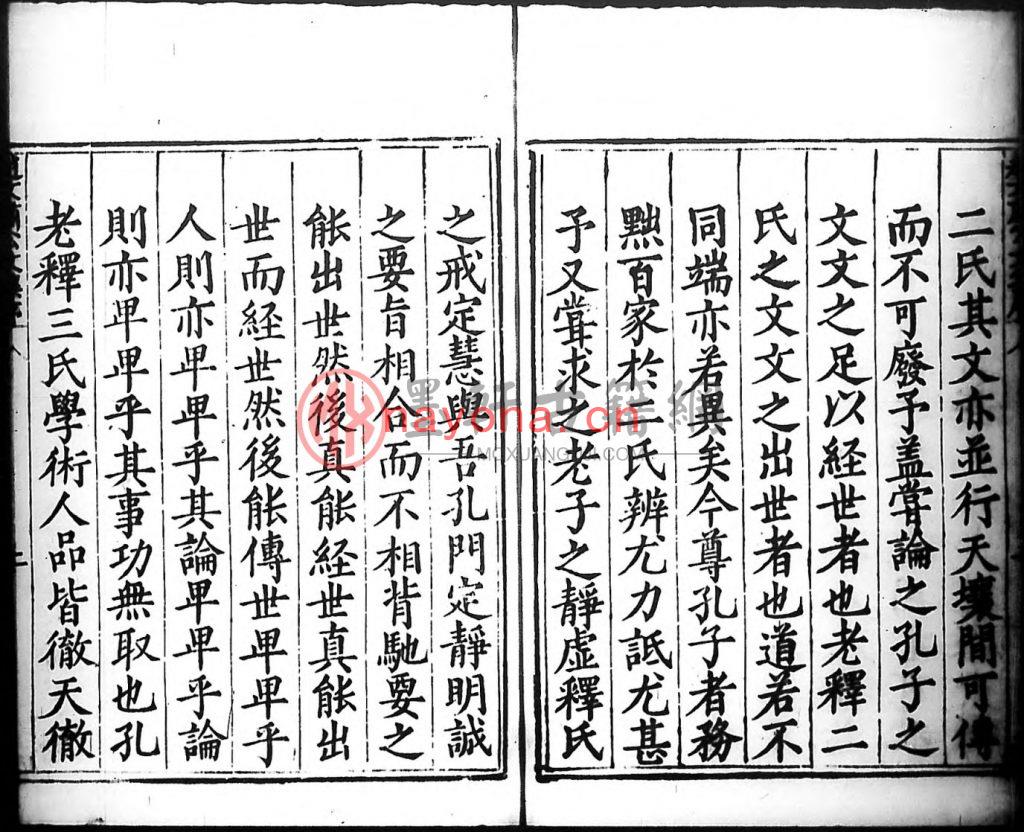 二氏其文亦並行天壤間可傳
而不可廢予盖甞論之孔子之
文文之足以経世者也老釋二
氏之文文之出世者也道若不
同端亦若異矣今尊孔子者務
黜百家於二氏辨尤力詆尤甚
予又甞求之老子之靜虚釋氏
之戒定慧與吾孔門定靜明誠
之要旨相合而不相背馳要之
能出世然後真能経世真能出
世而経世然後能傳世卑卑乎
人則亦卑卑乎其論卑卑乎論
則亦卑卑乎其事功無取也孔
老釋三氏學術人品皆徹天徹
墨軒古籍網
nayona.cn